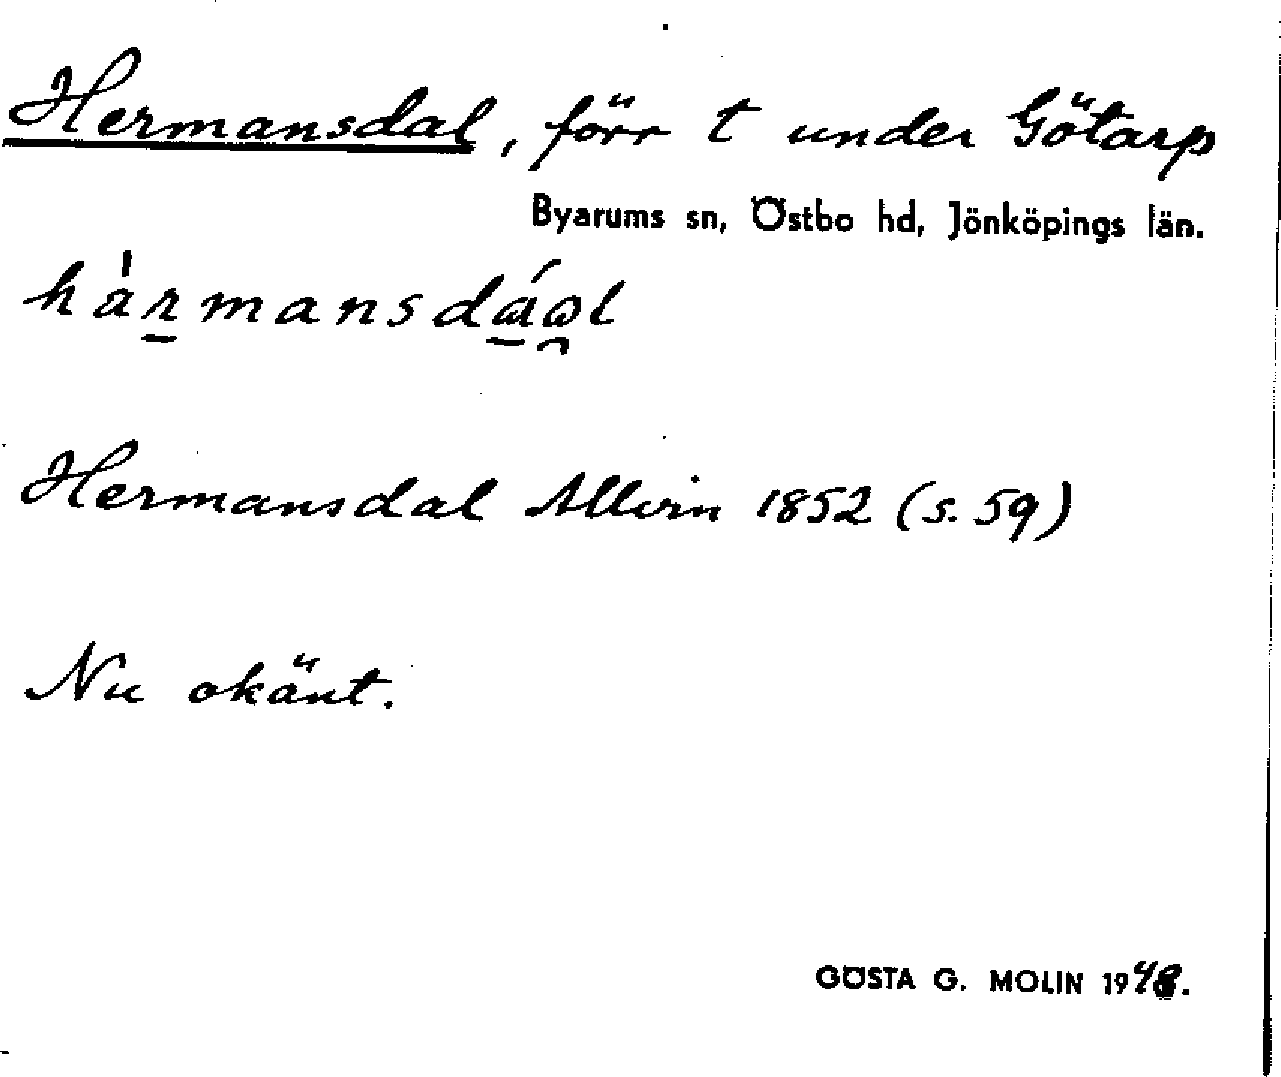 Hermansdal, förr t under Götarp
Byarums sn, Östbo hd, Jönköpings län.
Hermansdal Allvin 1852 (s. 59)
Nu okänt.
GÖSTA G. MOLIN 1948.